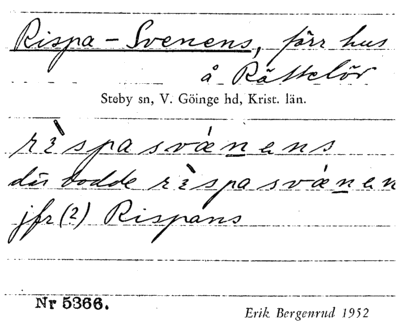 Rispa-Svenens, förr hus
å Rättelöv
Stoby sn, V. Göinge hd, Krist. län.
rìspasvánens
där bodde rìspasvánen
jfr (2) Rispans
Nr 5366.
Erik Bergenrud 1952